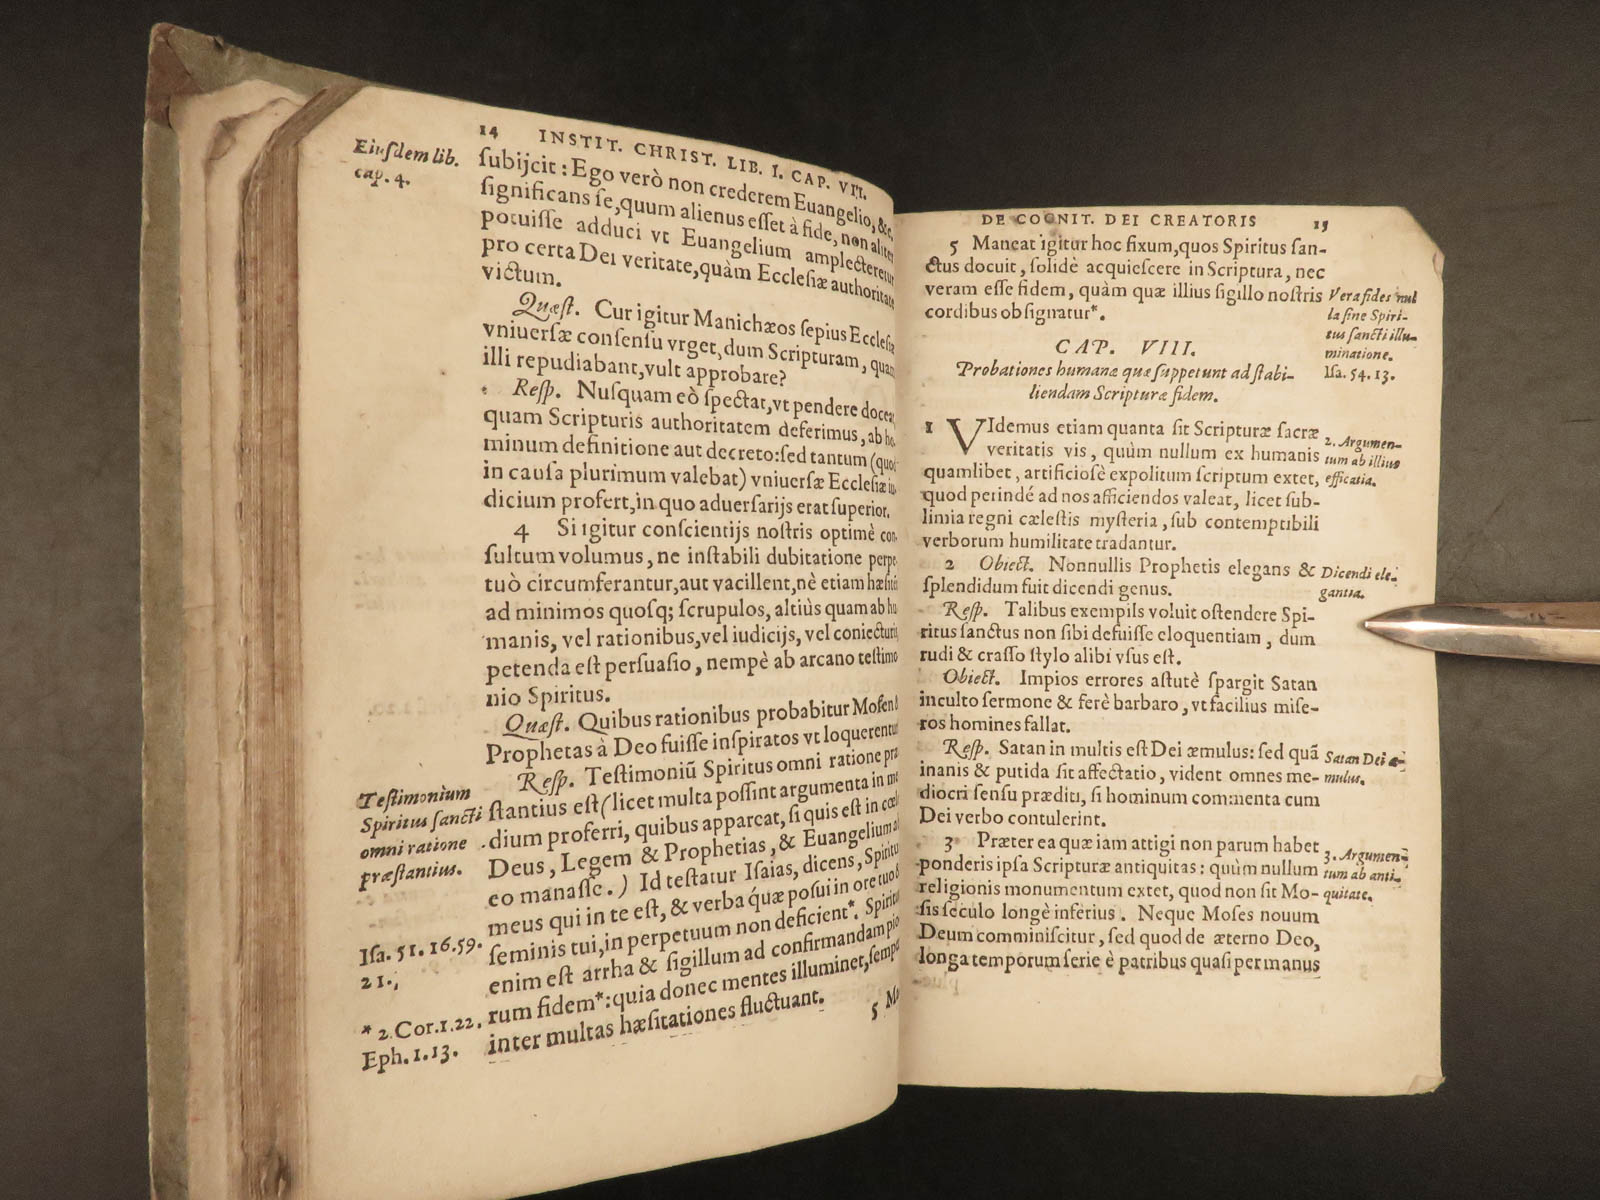 14 INSTIT. CHRIST. LIB. I. CAP. VII.
Eiuſdem lib.
cap. 4.
ſubijcit: Ego verò non crederem Euangelio, &c.
ſignificans ſe, quum alienus eſſet à fide, non aliter
potuiſſe adduci vt Euangelium amplecteretur
pro certa Dei veritate, quàm Eccleſiæ authoritate
victum.
Quæſt. Cur igitur Manichæos ſepius Eccleſiæ
vniuerſæ conſenſu vrget, dum Scripturam, quam
illi repudiabant, vult approbare?
Reſp. Nuſquam eò ſpectat, vt pendere docea
quam Scripturis authoritatem deferimus, ab ho-
minum definitione aut decreto: ſed tantum (quod
in cauſa plurimum valebat) vniuerſæ Eccleſiæ iu-
dicium profert, in quo aduerſarijs erat ſuperior.
4 Si igitur conſcientijs noſtris optimè con-
ſultum volumus, ne inſtabili dubitatione perpe-
tuò circumferantur, aut vacillent, nè etiam hæſitēt
ad minimos quoſq; ſcrupulos, altiùs quam ab hu
manis, vel rationibus, vel iudicijs, vel coniecturis
petenda eſt perſuaſio, nempè ab arcano teſtimo
nio Spiritus.
Quæſt. Quibus rationibus probabitur Moſen &
Prophetas à Deo fuiſſe inſpiratos vt loquerentur
Reſp. Teſtimoniū Spiritus omni ratione præ
ſtantius eſt (licet multa poſſint argumenta in me
dium proferri, quibus appareat, ſi quis eſt in cœlo
Deus, Legem & Prophetias, & Euangelium ab
eo manaſſe.) Id teſtatur Iſaias, dicens, Spiritus
meus qui in te eſt, & verba quæ poſui in ore tuo &
ſeminis tui, in perpetuum non deficient*. Spiritus
enim eſt arrha & ſigillum ad confirmandam pio
rum fidem*: quia donec mentes illuminet, ſemper
inter multas hæſitationes fluctuant.
5 Ma
Teſtimonium
Spiritus ſancti
omni ratione
præſtantius.
Iſa. 51. 16. 59.
21.
* 2. Cor. 1. 22.
Eph. 1. 13.
DE COGNIT. DEI CREATORIS 15
5 Maneat igitur hoc fixum, quos Spiritus ſan-
ctus docuit, ſolidè acquieſcere in Scriptura, nec
veram eſſe fidem, quàm quæ illius ſigillo noſtris
cordibus obſignatur*.
Vera fides nul
la ſine Spiri-
tus ſancti illu-
minatione.
Iſa. 54. 13.
CAP. VIII.
Probationes humanæ quæ ſuppetunt ad ſtabi-
liendam Scripturæ fidem.
1 VIdemus etiam quanta ſit Scripturæ ſacræ
veritatis vis, quùm nullum ex humanis
quamlibet, artificioſè expolitum ſcriptum extet,
quod perindé ad nos afficiendos valeat, licet ſub-
limia regni cæleſtis myſteria, ſub contemptibili
verborum humilitate tradantur.
2 Obiect. Nonnullis Prophetis elegans &
ſplendidum fuit dicendi genus.
Reſp. Talibus exemplis voluit oſtendere Spi-
ritus ſanctus non ſibi defuiſſe eloquentiam, dum
rudi & craſſo ſtylo alibi vſus eſt.
Obiect. Impios errores aſtutè ſpargit Satan
inculto ſermone & ferè barbaro, vt facilius miſe-
ros homines fallat.
Reſp. Satan in multis eſt Dei æmulus: ſed quā
inanis & putida ſit affectatio, vident omnes me-
diocri ſenſu præditi, ſi hominum commenta cum
Dei verbo contulerint.
3 Præter ea quæ iam attigi non parum habet
ponderis ipſa Scripturæ antiquitas: quùm nullum
religionis monumentum extet, quod non ſit Mo-
ſis ſeculo longè inferius. Neque Moſes nouum
Deum comminiſcitur, ſed quod de æterno Deo,
longa temporum ſerie è patribus quaſi per manus
2. Argumen-
tum ab illius
efficatia.
Dicendi ele-
gantia.
Satan Dei æ-
mulus.
3. Argumen-
tum ab anti-
quitate.